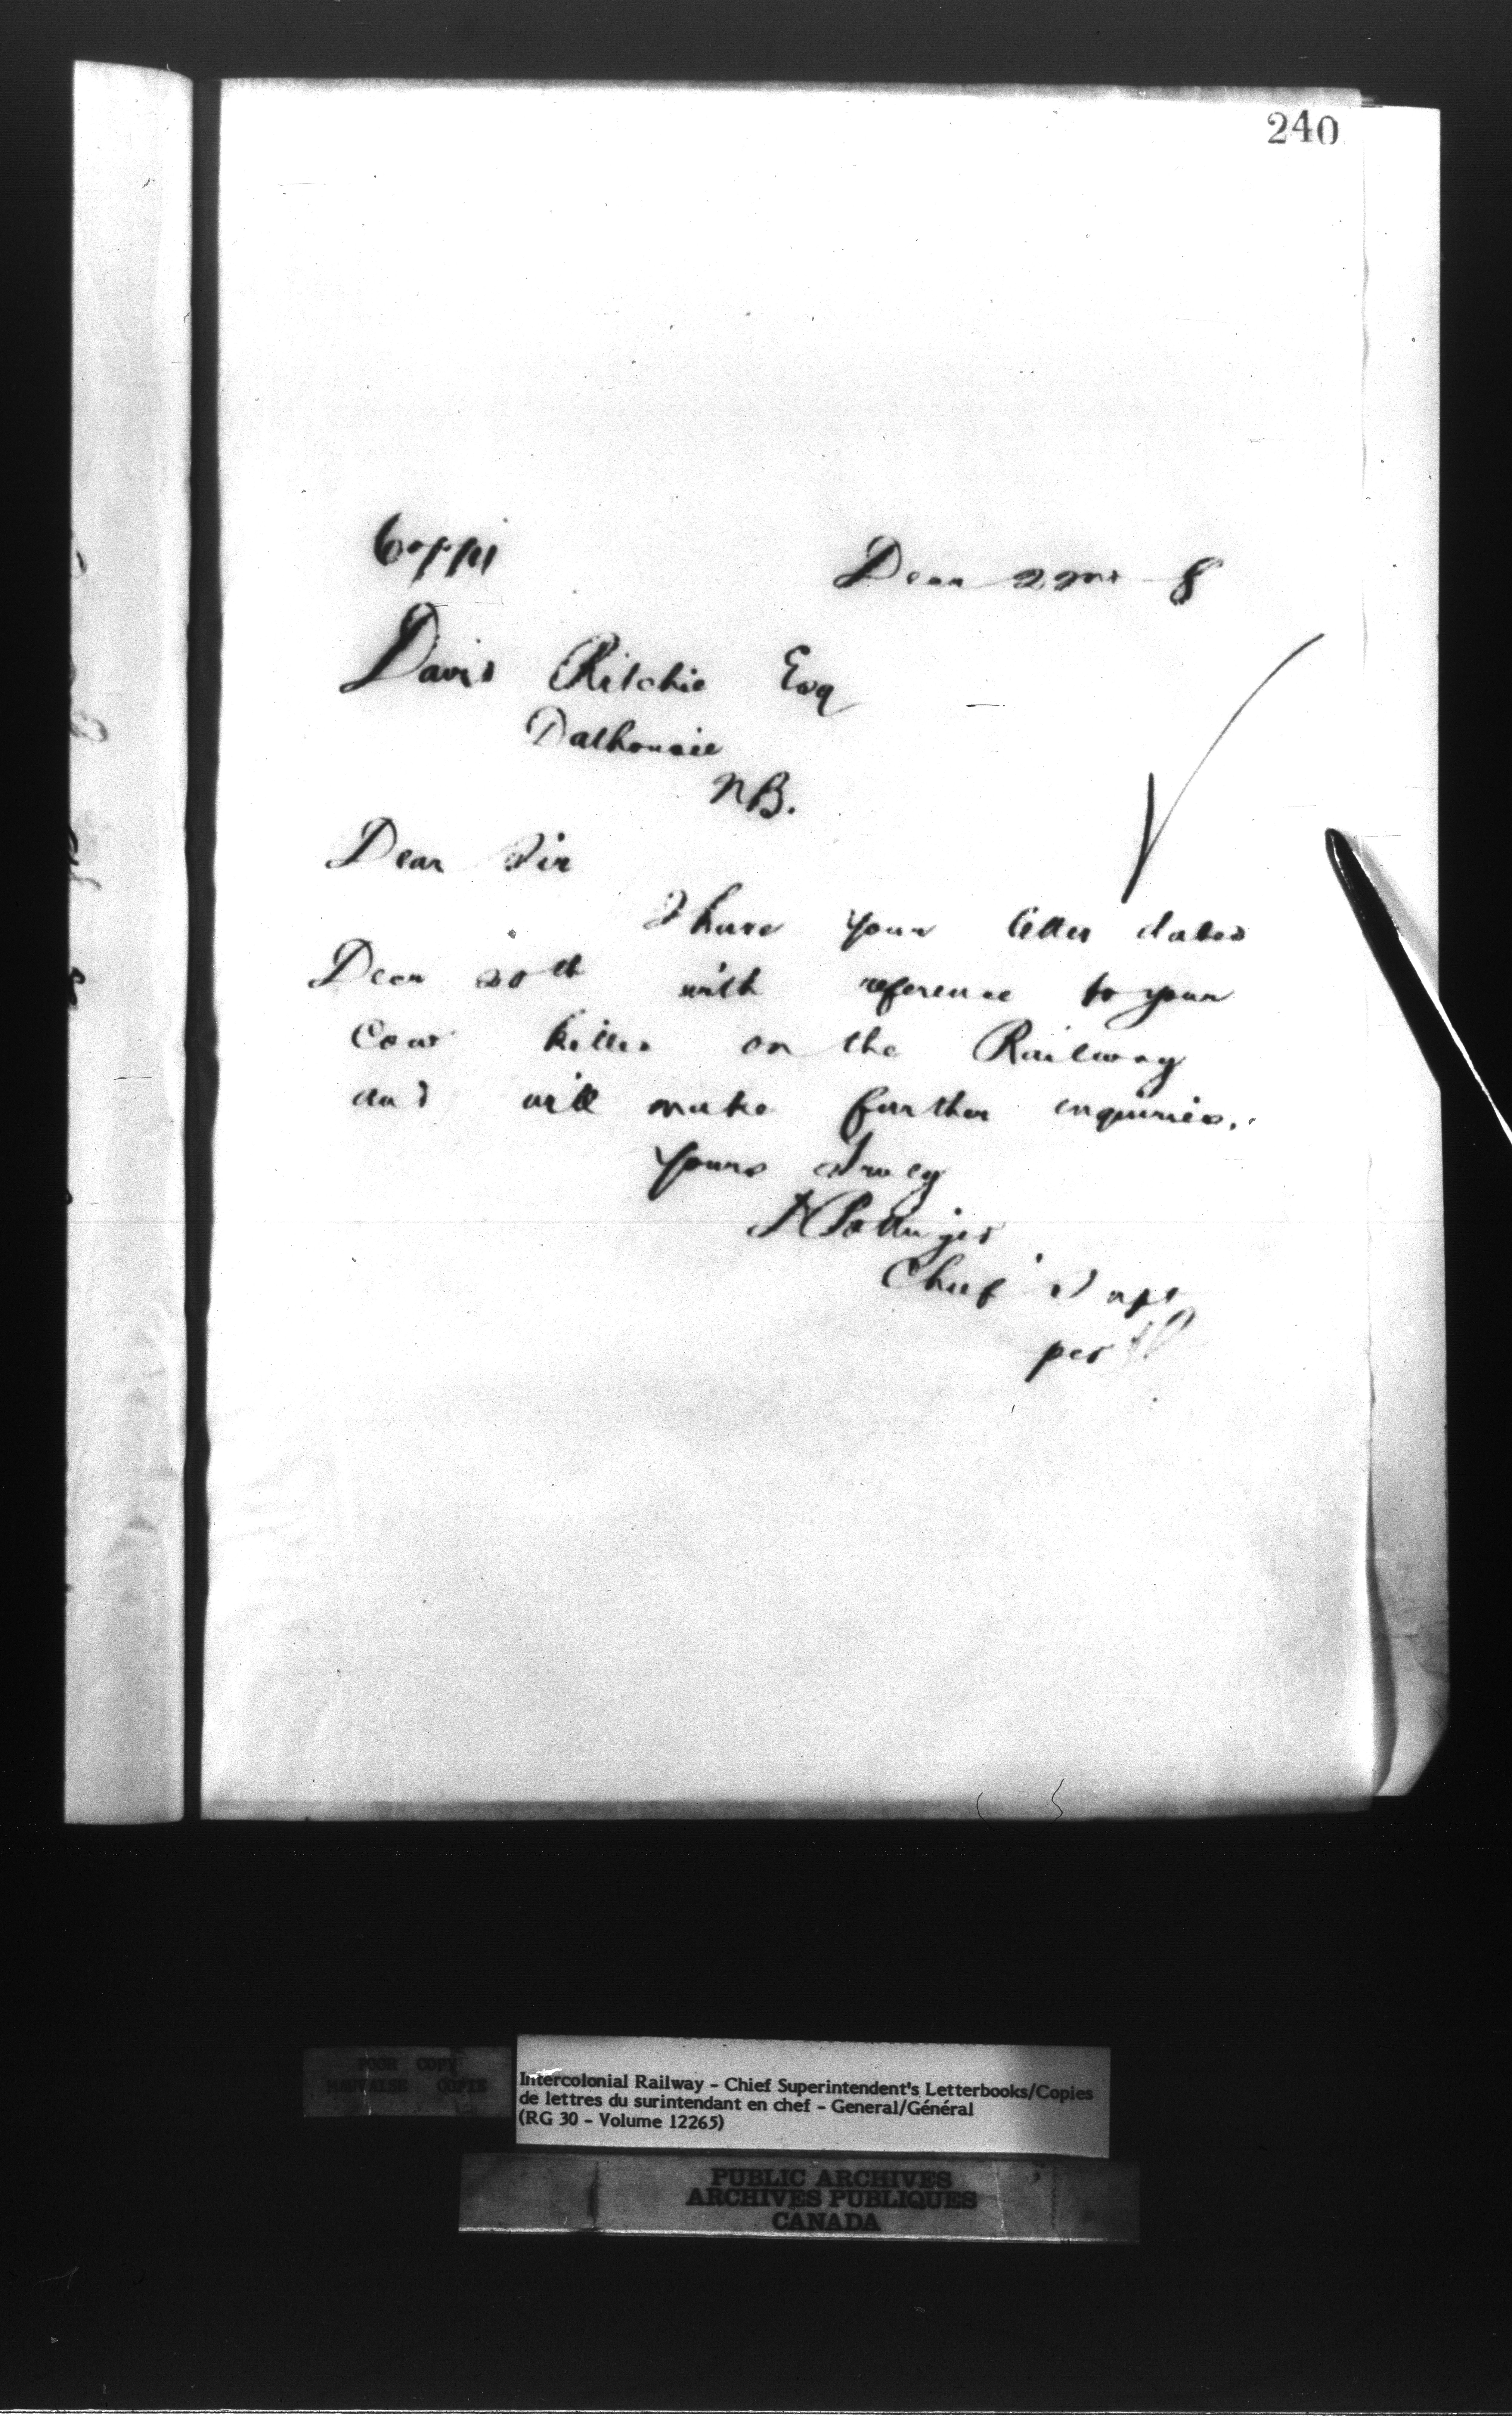 240
Copy
Decr 22nd 8
David Ritchie Esq
Dalhousie
NB.
Dear Sir
I have your letter dated
Decr 20th with reference to your
Cow killed on the Railway
and will make further enquiries.
Yours truly
D Pottinger
Chief Supt
per
POOR COPY
MAUVAISE COPIE
Intercolonial Railway - Chief Superintendent's Letterbooks/Copies
de lettres du surintendant en chef - General/Général
(RG 30 - Volume 12265)
PUBLIC ARCHIVES
ARCHIVES PUBLIQUES
CANADA